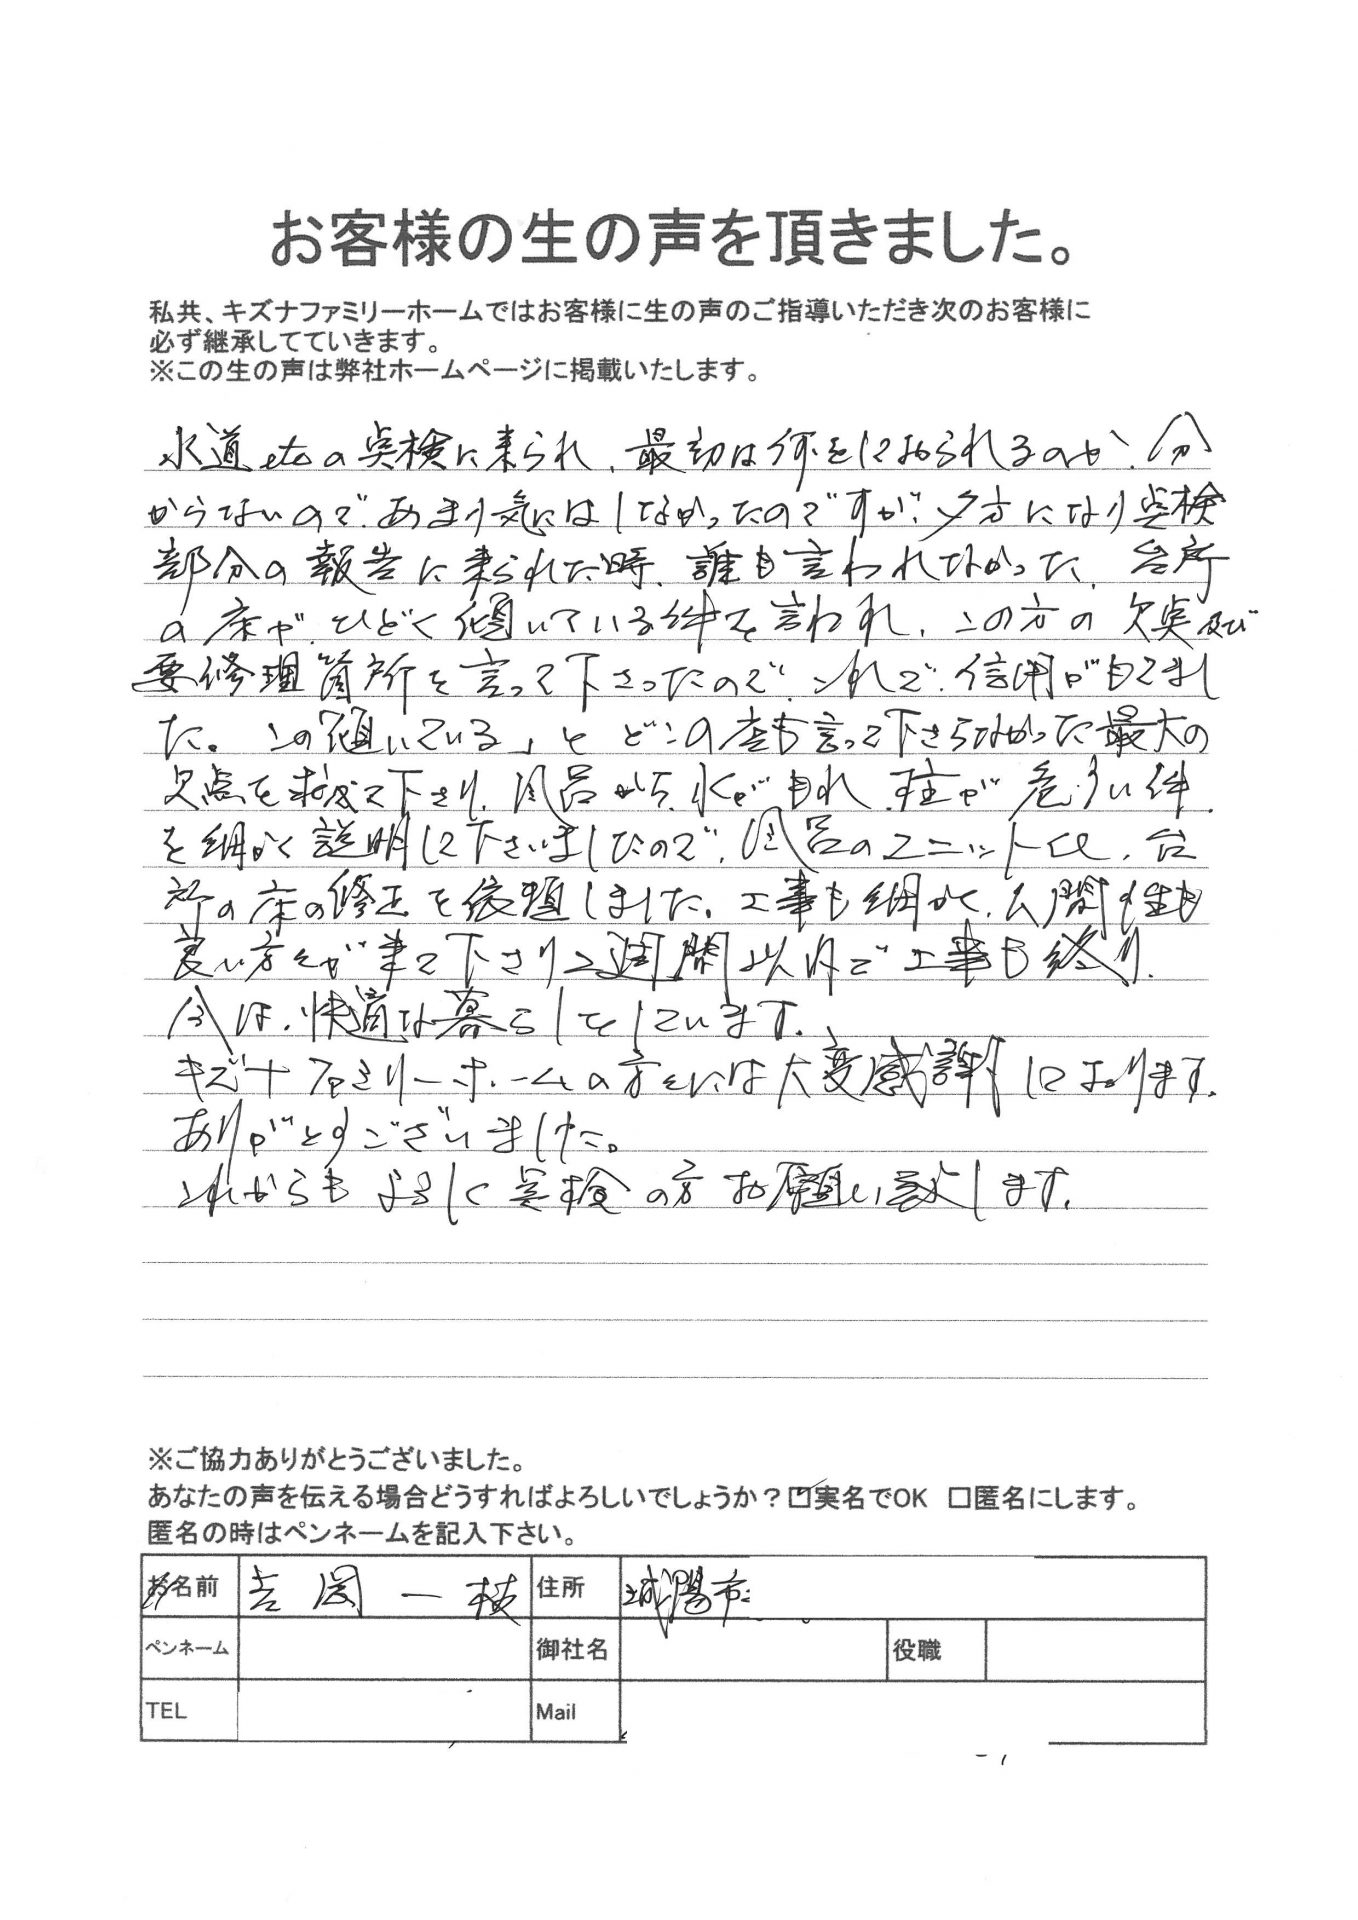 お客様の生の声を頂きました。
私共、キズナファミリーホームではお客様に生の声のご指導いただき次のお客様に
必ず継承してていきます。
※この生の声は弊社ホームページに掲載いたします。
水道etcの点検に来られ、最初は何をしておられるのか、分
からないので、あまり気にはしなかったのですが、夕方になり点検
部分の報告に来られた時、誰も言われなかった、台所
の床が、ひどく傾いている件を言われ、この方の欠点及び
要修理箇所を言って下さったので、これで、信用がもてまし
た。この傾いている」と どこの 言って下さらなかった最大の
欠点を 下さり、風呂から、水がもれ、柱が危うい件
を細かく説明して下さいましたので、風呂のユニット化、台
所の床の修正を依頼しました。工事も細かく、人間性も
良い方々が来て下さり2週間以内で工事も終り、
今は、快適な暮らしをしています。
キズナファミリーホームの方々には大変感謝しております。
ありがとうございました。
これからもよろしく点検の方お願い致します。
※ご協力ありがとうございました。
あなたの声を伝える場合どうすればよろしいでしょうか？☑実名でOK ☐匿名にします。
匿名の時はペンネームを記入下さい。
お名前 吉岡一 住所 城陽市
ペンネーム 御社名 役職
TEL Mail